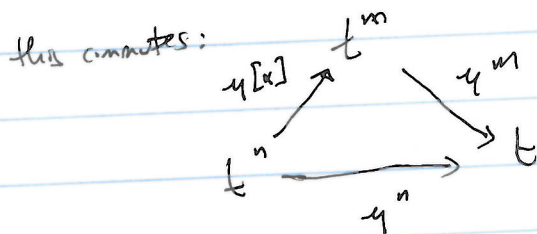 this commutes:
t^m
μ[α]
μ^m
t^n
t
μ^n